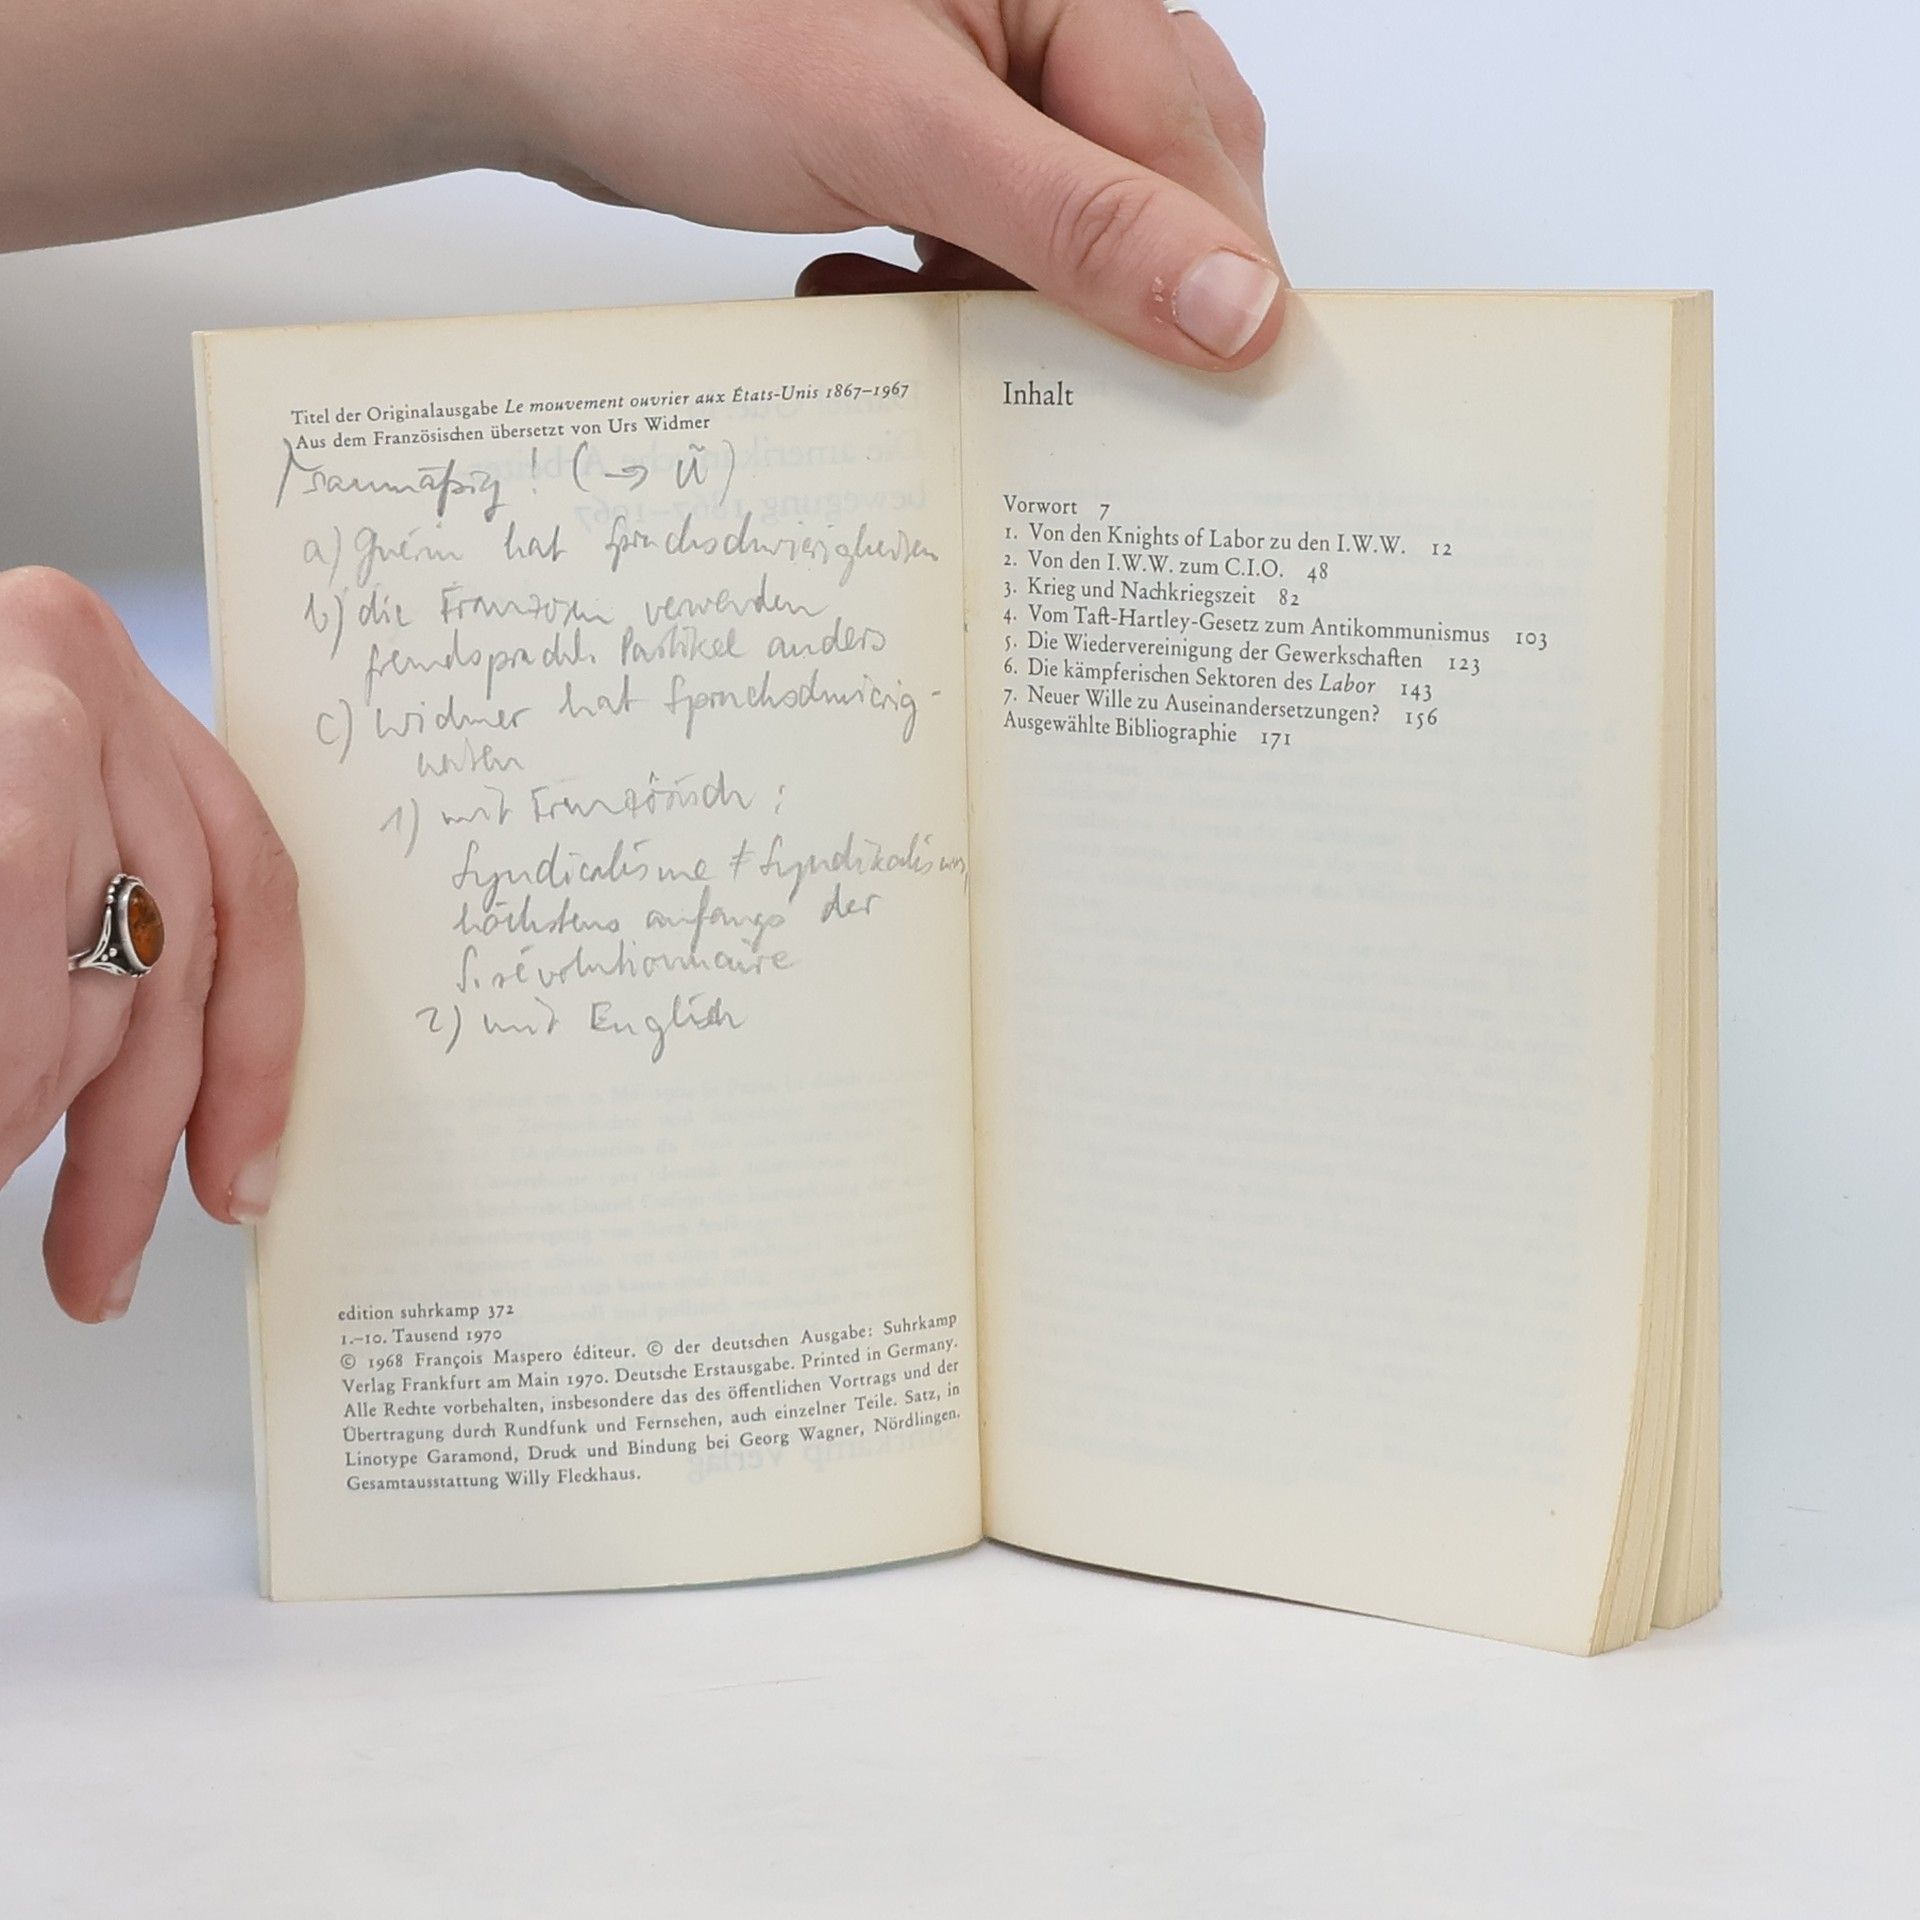 Titel der Originalausgabe Le mouvement ouvrier aux États-Unis 1867–1967
Aus dem Französischen übersetzt von Urs Widmer
saumäßig! (→ Ü)
a) Guérin hat Sprachschwierigkeiten
b) die Franzosen verwenden
fremdsprachl. Partikel anders
c) Widmer hat Sprachschwierig-
keiten
1) mit Französisch:
Syndicalisme ≠ Syndikalismus,
höchstens anfangs der
S. révolutionnaire
2) mit Englisch
edition suhrkamp 372
1.–10. Tausend 1970
© 1968 François Maspero éditeur. © der deutschen Ausgabe: Suhrkamp
Verlag Frankfurt am Main 1970. Deutsche Erstausgabe. Printed in Germany.
Alle Rechte vorbehalten, insbesondere das des öffentlichen Vortrags und der
Übertragung durch Rundfunk und Fernsehen, auch einzelner Teile. Satz, in
Linotype Garamond, Druck und Bindung bei Georg Wagner, Nördlingen.
Gesamtausstattung Willy Fleckhaus.
Inhalt
Vorwort 7
1. Von den Knights of Labor zu den I.W.W. 12
2. Von den I.W.W. zum C.I.O. 48
3. Krieg und Nachkriegszeit 82
4. Vom Taft-Hartley-Gesetz zum Antikommunismus 103
5. Die Wiedervereinigung der Gewerkschaften 123
6. Die kämpferischen Sektoren des Labor 143
7. Neuer Wille zu Auseinandersetzungen? 156
Ausgewählte Bibliographie 171